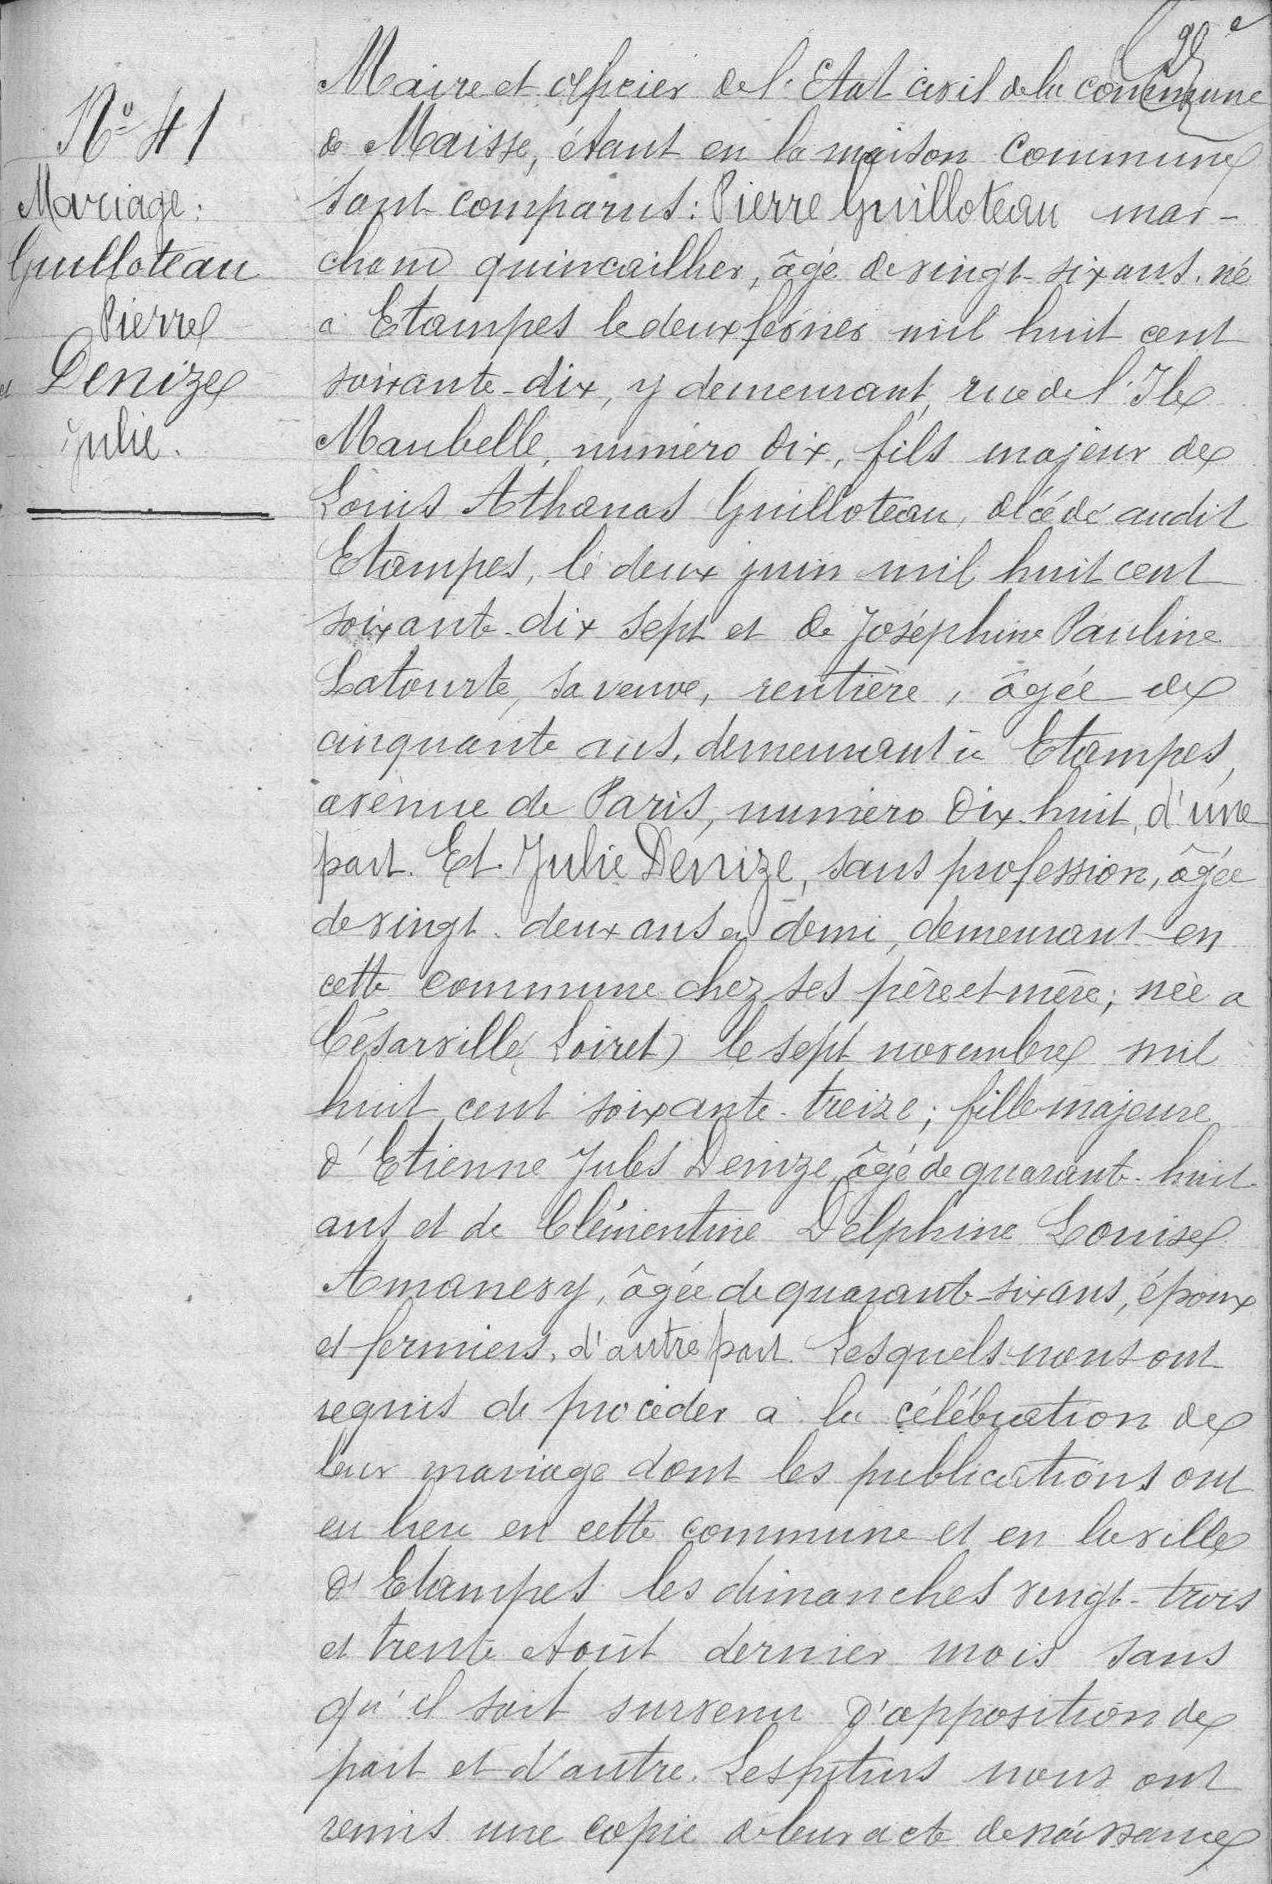 Nº 41
Mariage :
Guilloteau
Pierre
et Denize
Julie.
Maire et officier de l'Etat civil de la commune
de Maisse, étant en la maison commune
sont comparus : Pierre Guilloteau mar-
chand quincailler, âgé de vingt-six ans, né
à Etampes le deux février mil huit cent
soixante-dix, y demeurant, rue de l'Ile
Maubelle, numéro dix, fils majeur de
Louis Athanas Guilloteau, décédé audit
Etampes, le deux juin mil huit cent
soixante-dix sept et de Joséphine Pauline
Latourte, sa veuve, rentière, âgée de
cinquante ans, demeurant à Etampes,
avenue de Paris, numéro dix-huit, d'une
part. Et Julie Denize, sans profession, âgée
de vingt-deux ans et demi, demeurant en
cette commune chez ses père et mère ; née à
Césarville (Loiret) le sept novembre mil
huit cent soixante-treize ; fille majeure
d'Etienne Jules Denize, âgé de quarante-huit
ans et de Clémentine Delphine Louise
Amanery, âgée de quarante-six ans, époux
et fermiers, d'autre part. Lesquels nous ont
requis de procéder à la célébration de
leur mariage dont les publications ont
eu lieu en cette commune et en la ville
d'Etampes les dimanches vingt-trois
et trente Août dernier mois sans
qu'il soit survenu d'opposition de
part et d'autre. Les futurs nous ont
remis une copie de leur acte de naissance